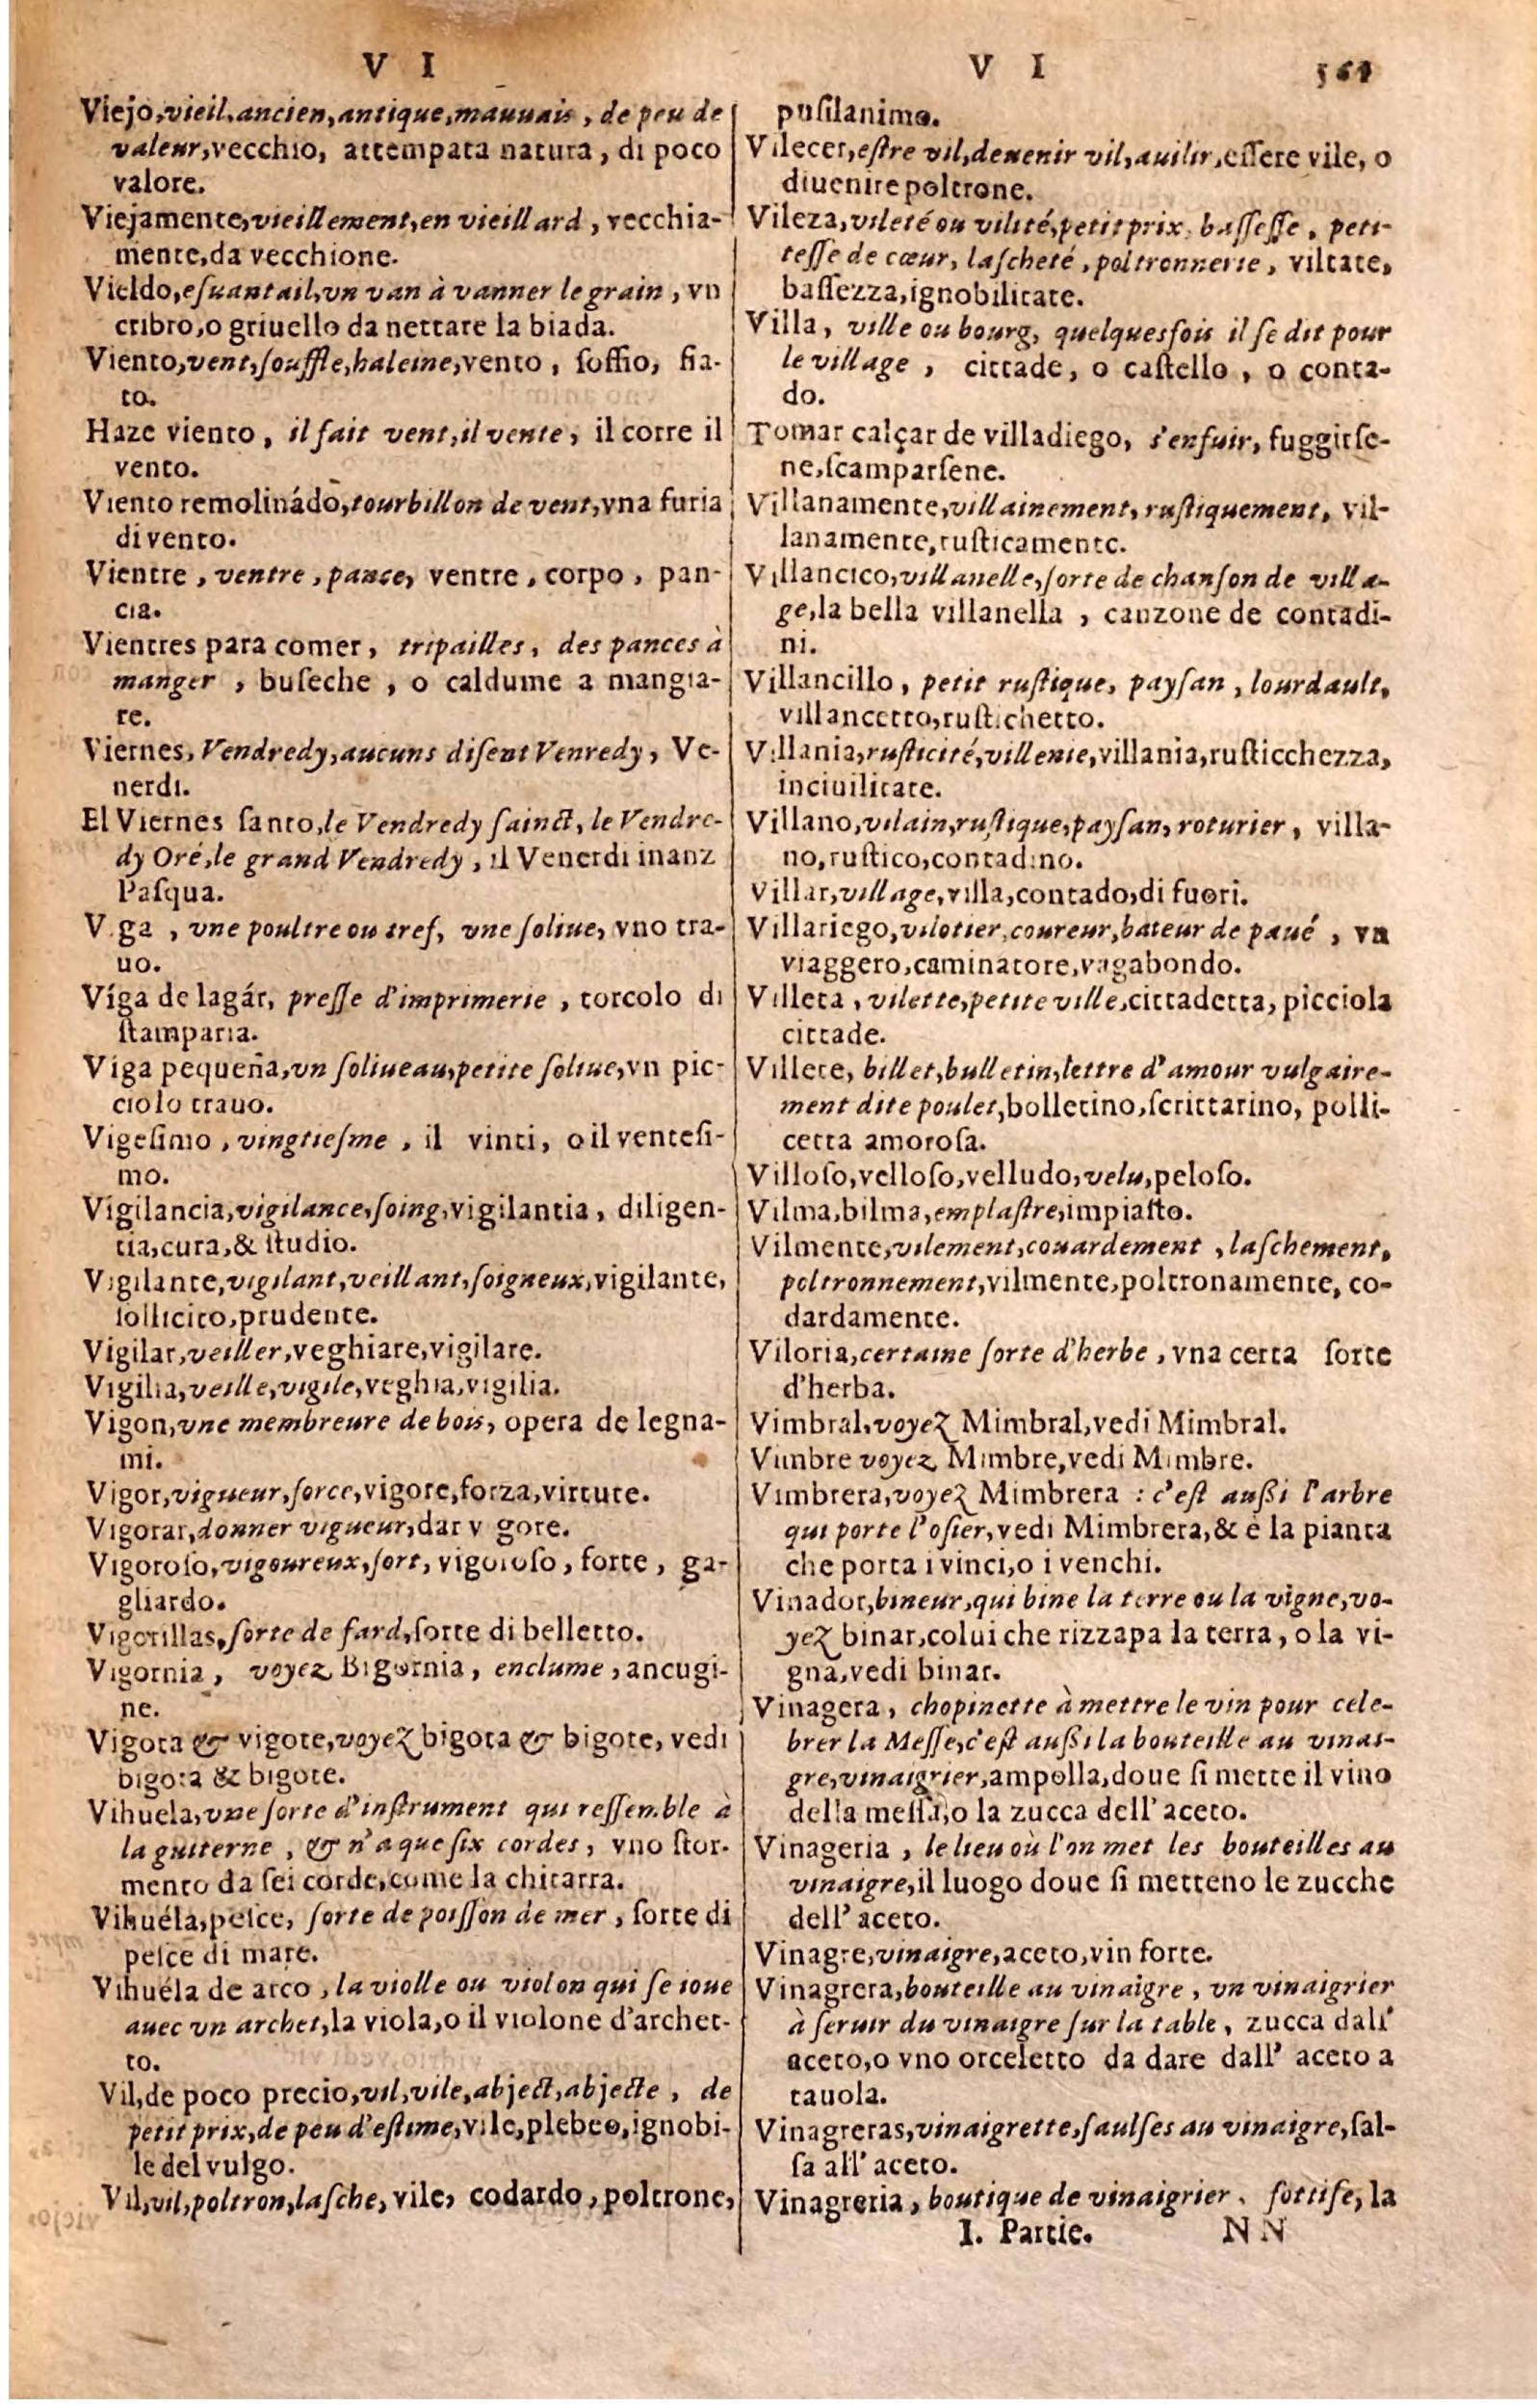 V I
V I
561
Viejo, vieil, ancien, antique, mauuais, de peu de
valeur, vecchio, attempata natura, di poco
valore.
Viejamente, vieillement, en vieillard, vecchia-
mente, da vecchione.
Vieldo, esuantail, vn van à vanner le grain, vn
cribro, o griuello da nettare la biada.
Viento, vent, souffle, haleine, vento, soffio, fia-
to.
Haze viento, il fait vent, il vente, il corre il
vento.
Viento remolinádo, tourbillon de vent, vna furia
di vento.
Vientre, ventre, pance, ventre, corpo, pan-
cia.
Vientres para comer, tripailles, des pances à
manger, buseche, o caldume a mangia-
re.
Viernes, Vendredy, aucuns disent Venredy, Ve-
nerdi.
El Viernes santo, le Vendredy sainct, le Vendre-
dy Oré, le grand Vendredy, il Venerdi inanz
Pasqua.
Viga, vne poultre ou tref, vne soliue, vno tra-
uo.
Víga de lagár, presse d'imprimerie, torcolo di
stamparia.
Viga pequeña, vn soliueau, petite soliue, vn pic-
ciolo trauo.
Vigesimo, vingtiesme, il vinti, o il ventesi-
mo.
Vigilancia, vigilance, soing, vigilantia, diligen-
tia, cura, & studio.
Vigilante, vigilant, veillant, soigneux, vigilante,
sollicito, prudente.
Vigilar, veiller, veghiare, vigilare.
Vigilia, veille, vigile, veghia, vigilia.
Vigon, vne membreure de bois, opera de legna-
mi.
Vigor, vigueur, force, vigore, forza, virtute.
Vigorar, donner vigueur, dar vigore.
Vigoroso, vigoureux, fort, vigoroso, forte, ga-
gliardo.
Vigorillas, sorte de fard, sorte di belletto.
Vigornia, voyez Bigornia, enclume, ancugi-
ne.
Vigota & vigote, voyez bigota & bigote, vedi
bigota & bigote.
Vihuela, vne sorte d'instrument qui ressemble à
la guiterne, & n'a que six cordes, vno stor-
mento da sei corde, come la chitarra.
Vihuéla, pesce, sorte de poisson de mer, sorte di
pesce di mare.
Vihuéla de arco, la violle ou violon qui se ioue
auec vn archet, la viola, o il violone d'archet-
to.
Vil, de poco precio, vil, vile, abject, abjecte, de
petit prix, de peu d'estime, vile, plebeo, ignobi-
le del vulgo.
Vil, vil, poltron, lasche, vile, codardo, poltrone,
pusilanimo.
Vilecer, estre vil, deuenir vil, auilir, essere vile, o
diuenire poltrone.
Vileza, vileté ou vilité, petit prix, bassesse, peti-
tesse de cœur, lascheté, poltronnerie, viltate,
bassezza, ignobilitate.
Villa, ville ou bourg, quelquesfois il se dit pour
le village, cittade, o castello, o conta-
do.
Tomar calçar de villadiego, s'enfuir, fuggirse-
ne, scamparsene.
Villanamente, villainement, rustiquement, vil-
lanamente, rusticamente.
Villancico, villanelle, sorte de chanson de villa-
ge, la bella villanella, canzone de contadi-
ni.
Villancillo, petit rustique, paysan, lourdault,
villancetto, rustichetto.
Villania, rusticité, villenie, villania, rusticchezza,
inciuilitate.
Villano, vilain, rustique, paysan, roturier, villa-
no, rustico, contadino.
Villar, village, villa, contado, di fuori.
Villariego, vilotier, coureur, bateur de paué, vn
viaggero, caminatore, vagabondo.
Villeta, vilette, petite ville, cittadetta, picciola
cittade.
Villete, billet, bulletin, lettre d'amour vulgaire-
ment dite poulet, bolletino, scrittarino, polli-
cetta amorosa.
Villoso, velloso, velludo, velu, peloso.
Vilma, bilma, emplastre, impiasto.
Vilmente, vilement, couardement, laschement,
poltronnement, vilmente, poltronamente, co-
dardamente.
Viloria, certaine sorte d'herbe, vna certa sorte
d'herba.
Vimbral, voyez Mimbral, vedi Mimbral.
Vimbre voyez Mimbre, vedi Mimbre.
Vimbrera, voyez Mimbrera : c'est aussi l'arbre
qui porte l'osier, vedi Mimbrera, & è la pianta
che porta i vinci, o i venchi.
Vinador, bineur, qui bine la terre ou la vigne, vo-
yez binar, colui che rizzapa la terra, o la vi-
gna, vedi binar.
Vinagera, chopinette à mettre le vin pour cele-
brer la Messe, c'est aussi la bouteille au vinai-
gre, vinaigrier, ampolla, doue si mette il vino
della messa, o la zucca dell' aceto.
Vinageria, le lieu où l'on met les bouteilles au
vinaigre, il luogo doue si metteno le zucche
dell' aceto.
Vinagre, vinaigre, aceto, vin forte.
Vinagrera, bouteille au vinaigre, vn vinaigrier
à seruir du vinaigre sur la table, zucca dall'
aceto, o vno orceletto da dare dall' aceto a
tauola.
Vinagreras, vinaigrette, saulses au vinaigre, sal-
sa all' aceto.
Vinagreria, boutique de vinaigrier, sottise, la
I. Partie.
N N